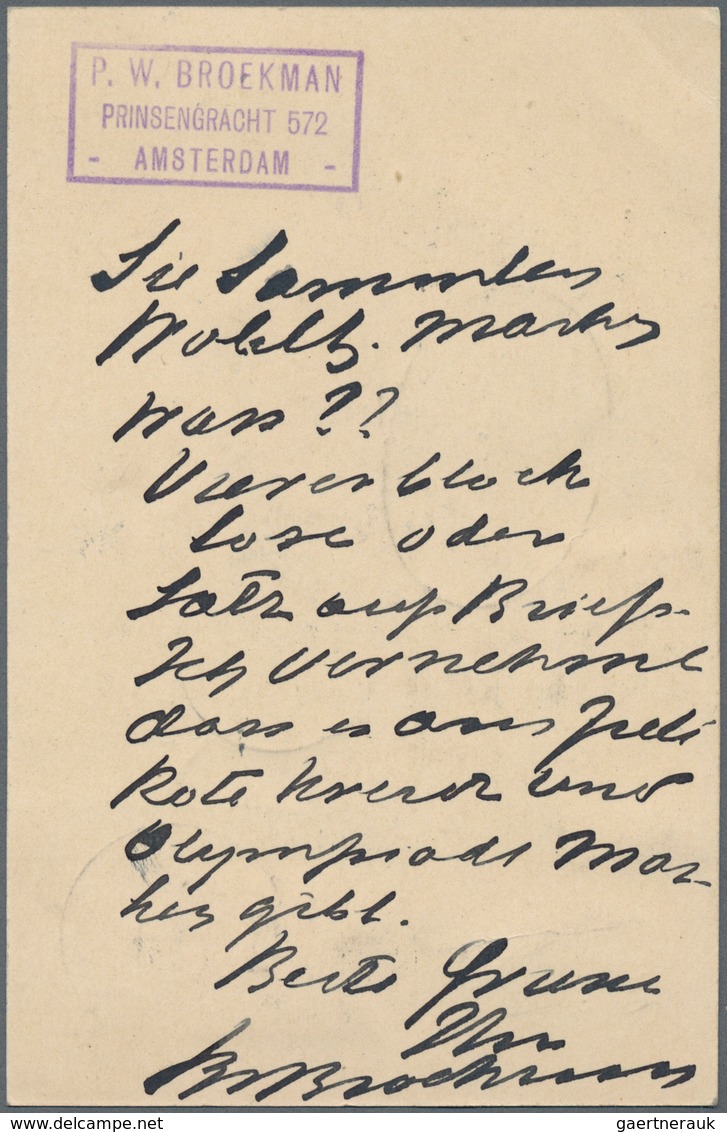 P. W. BROEKMAN
PRINSENGRACHT 572
- AMSTERDAM -
Sie Sammlen
Wohltt. Marken
Wass ??
Viererblock
Lose oder
Satz auf Brief.
Ich vernehme
dass es am Juli
Rote Kreuz und
Olympiade Mar-
ken gibt.
Beste Grusse
Ihr
Broekman
gaertnerauk